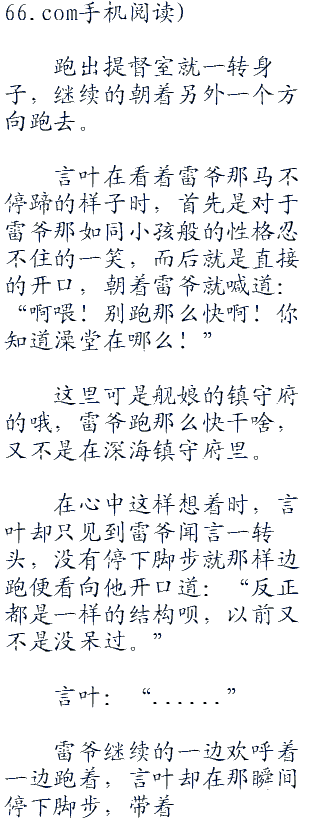 66.com手机阅读）
跑出提督室就一转身
子，继续的朝着另外一个方
向跑去。
言叶在看着雷爷那马不
停蹄的样子时，首先是对于
雷爷那如同小孩般的性格忍
不住的一笑，而后就是直接
的开口，朝着雷爷就喊道：
“啊喂！别跑那么快啊！你
知道澡堂在哪么！”
这里可是舰娘的镇守府
的哦，雷爷跑那么快干啥，
又不是在深海镇守府里。
在心中这样想着时，言
叶却只见到雷爷闻言一转
头，没有停下脚步就那样边
跑便看向他开口道：“反正
都是一样的结构呗，以前又
不是没呆过。”
言叶：“......”
雷爷继续的一边欢呼着
一边跑着，言叶却在那瞬间
停下脚步，带着